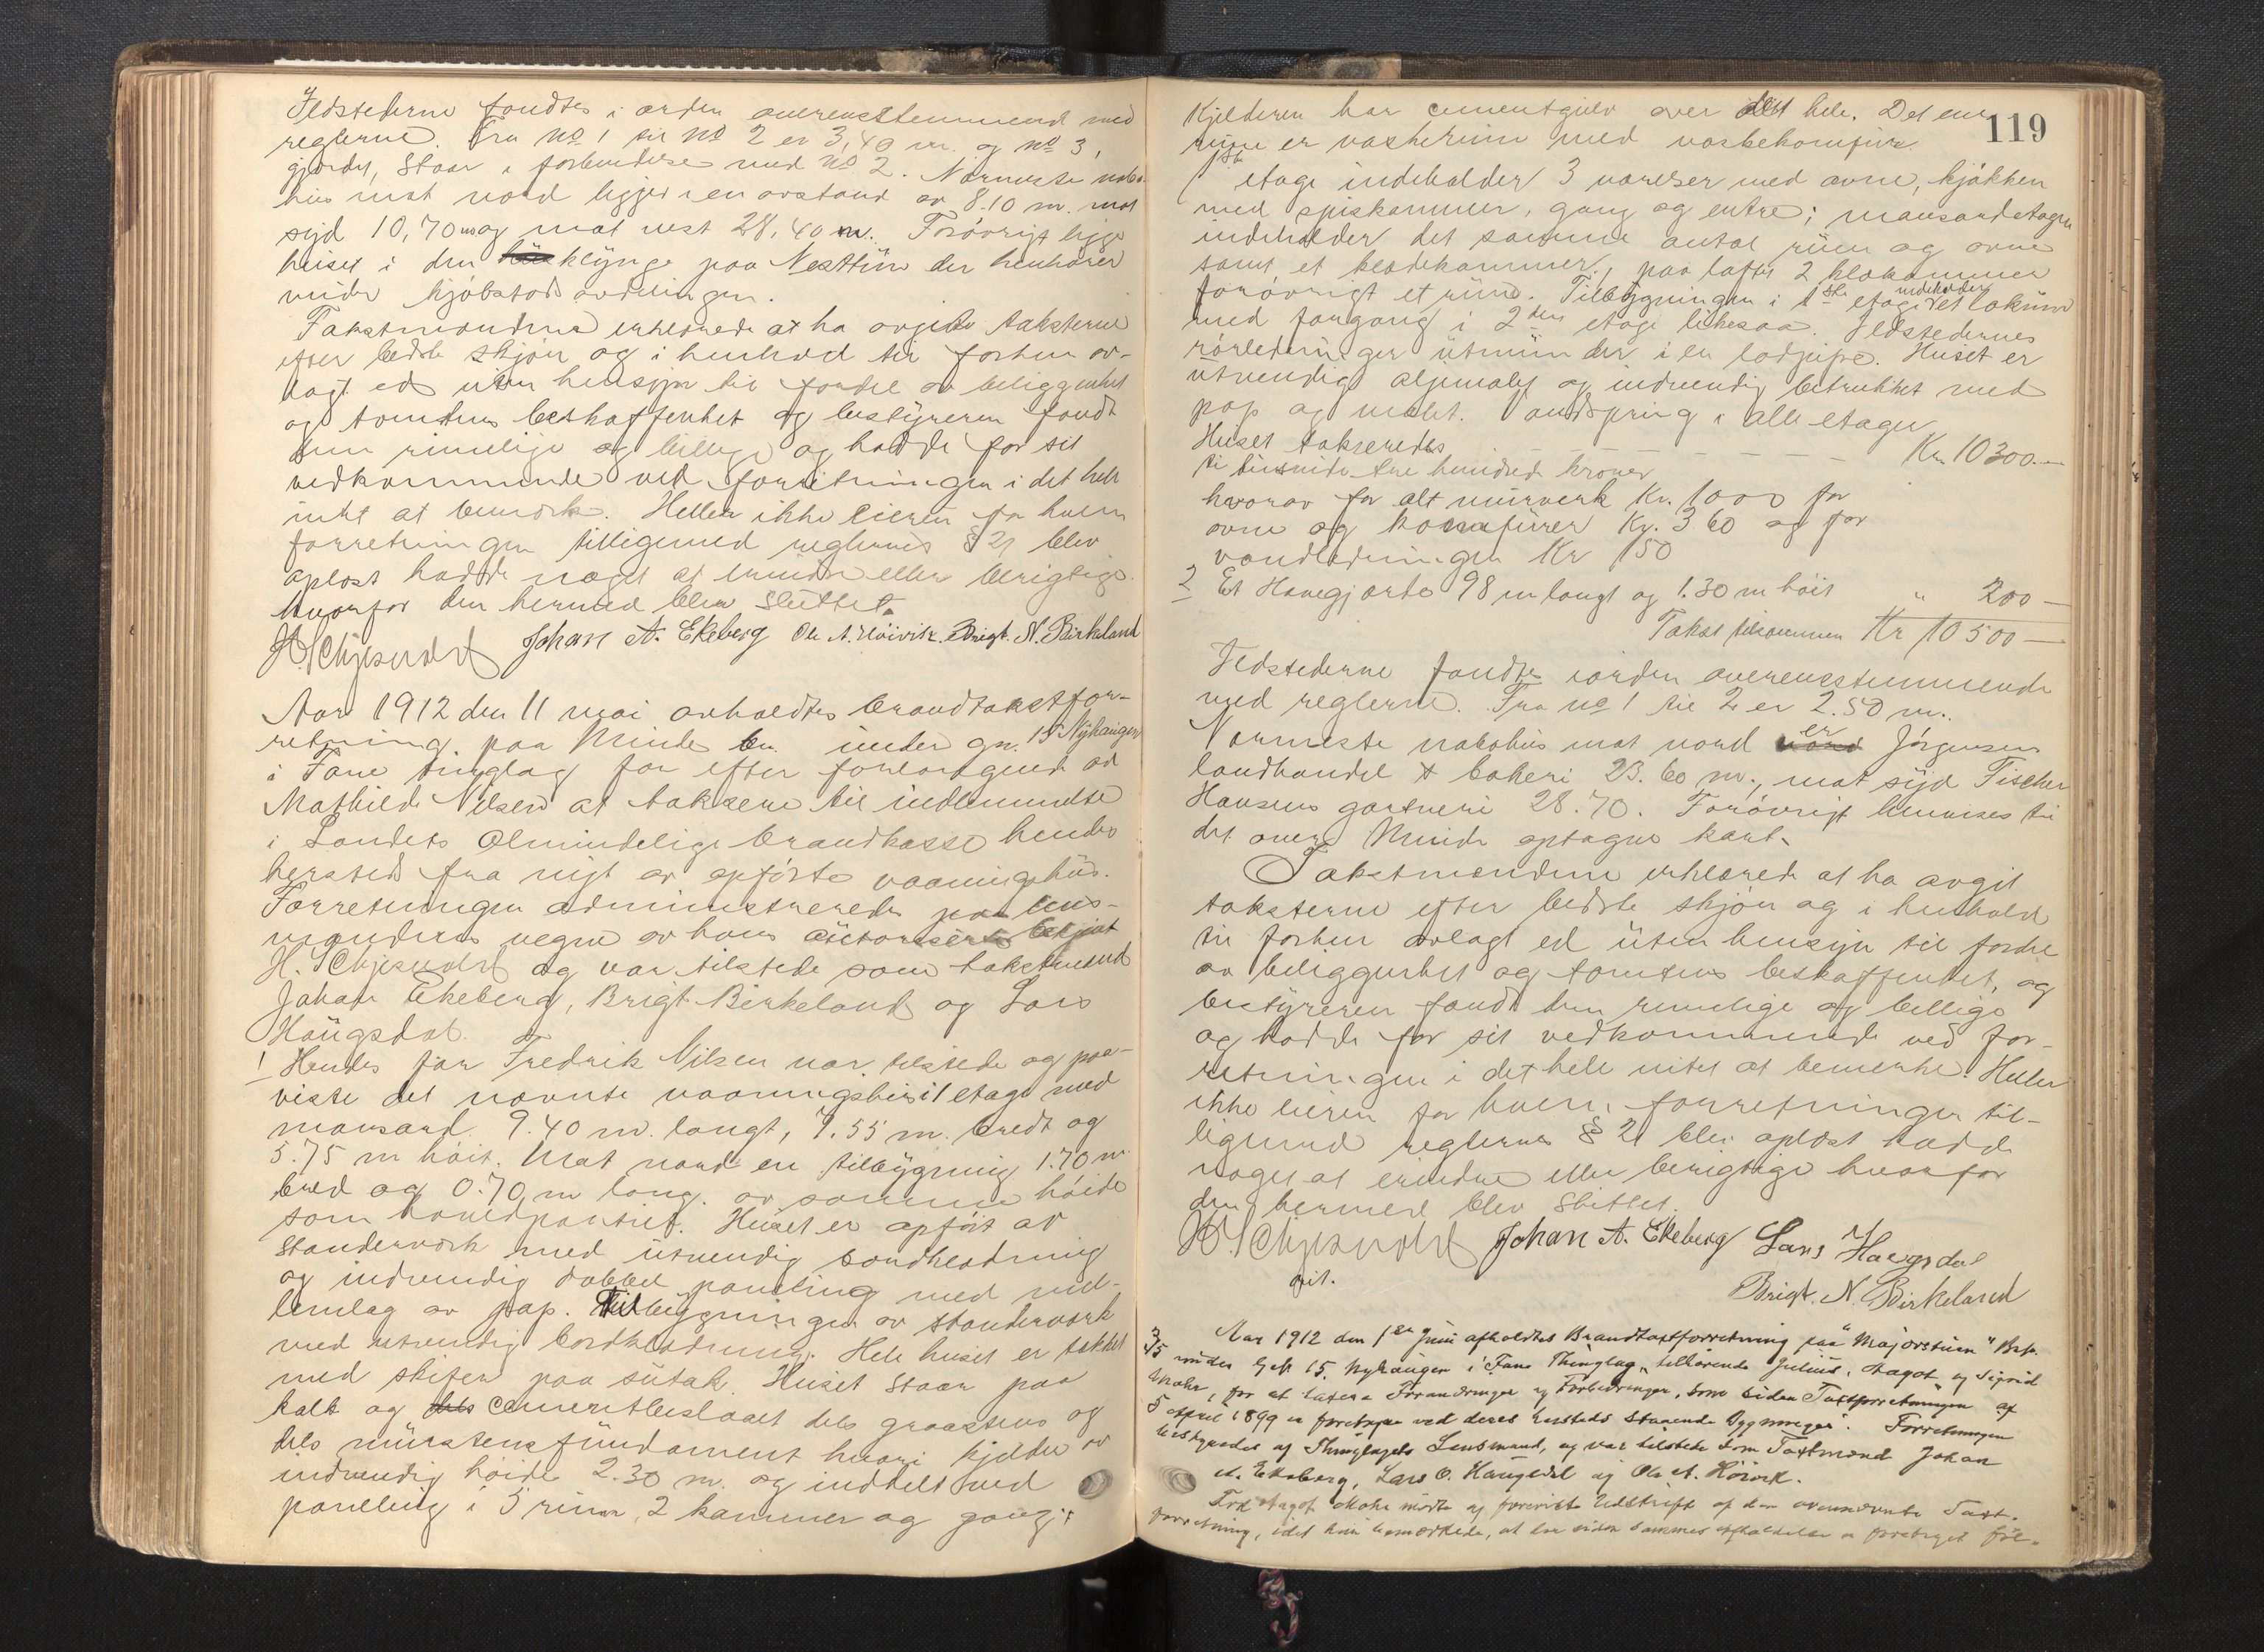 Ildstederne fandtes i orden overensstemmende med
reglerne. Fra No 1 til No 2 er 3,40 m. og No 3,
gjerdet, staar i forbindelse med No 2. Nærmeste nabo-
hus mot nord ligger i en avstand av 8.10 m. mot
syd 10,70 m og mot vest 28,40 m. Forøvrigt ligger
huset i den klynge paa Nesttun der henhører
under kjøbstadsavdelingen.
Takstmændene erklærede at ha avgit taksterne
efter bedste skjøn og i henhold til forhen av-
lagt ed uten hensyn til fordel av beliggenhet
og tomtens beskaffenhet og bestyreren fandt
dem rimelige og billige og hadde for sit
vedkommende ved forretningen i det hele
intet at bemerke. Heller ikke eieren for hvem
forretningen tilligemed reglernes § 21 blev
oplæst hadde noget at erindre eller berigtige
hvorfor den hermed blev sluttet.
H. Schjelderup Johan A. Ekeberg Ole A. Høivik. Brigt. N. Birkeland
Aar 1912 den 11 mai avholdtes brandtakstfor-
retning paa Minde bn. under gn. 15 Nyhaugen
i Fane tinglag for efter forlangende av
Mathilde Nilsen at taksere til indlemmelse
i Landets Almindelige brandkasse hendes
hersteds fra nyt av opførte vaaningshus.
Forretningen administreredes paa lens-
mandens vegne av hans autoriserte betjent
H. Schjelderup og var tilstede som takstmænd
Johan Ekeberg, Brigt Birkeland og Lars
Haugsdal.
1 Hendes far Fredrik Nilsen var tilstede og paa-
viste det nævnte vaaningshus i 1 etage med
mansard 9.40 m. langt, 7.55 m. bredt og
5.75 m høit. Mot nord en tilbygning 1.70 m.
bred og 0.70 m lang. av samme høide
som hovedpartiet. Huset er opført av
standerverk med utvendig bordklædning
og indvendig dobbel paneling med mel-
lemlag av pap. Tilbygningen av standerverk
med utvendig bordklædning. Hele huset er tækket
med skifer paa sutak. Huset staar paa
kalk og cementbeslaaet dels graastens og
dels murstensfundament hvori kjelder av
indvendig høide 2.30 m. og inddelt ved
paneling i 5 rum, 2 kammer og gang.
119
Kjelderen har cementgulv over det hele. Det ene
rum er vaskerum med vaskekomfur.
1ste etage indeholder 3 værelser med ovne, kjøkken
med spiskammer, gang og entre; mansardetagen
indeholder det samme antal rum og ovne
samt et klædekammer, paa loftet 2 klækammer
forøvrigt et rum. Tilbygningen i 1ste etage indeholder et lokum
med forgang i 2den etage likesaa. Ildstedernes
rørledninger utmunder i en lodpipe. Huset er
utvendig oljemalt og indvendig betrukket med
pap og malt. Vandspring i alle etager
Huset takseredes Kr 10300.—
ti tusinde tre hundrede kroner
hvorav for alt murverk Kr. 1000 for
ovne og komfurer Kr. 360 og for
vandledningen Kr 150
2 Et Havegjærde 98 m langt og 1.30 m høit " 200 —
Takst tilsammen Kr 10500 —
Ildstederne fandtes i orden overensstemmende
med reglerne. Fra no 1 til 2 er 2.50 m.
Nærmeste nabohus mot nord er Jørgensens
landhandel & bakeri 23.60 m., mot syd Fischer
Hansens gartneri 28.70. Forøvrigt henvises til
det over Minde optagne kart.
Takstmændene erklærede at ha avgit
taksterne efter bedste skjøn og i henhold
til forhen avlagt ed uten hensyn til fordel
av beliggenhet og tomtens beskaffenhet, og
bestyreren fandt dem rimelige og billige
og hadde for sit vedkommende ved for-
retningen i det hele intet at bemerke. Heller
ikke eieren for hvem forretningen til-
ligemed reglernes § 21 blev oplæst hadde
noget at erindre eller berigtige hvorfor
den hermed blev sluttet.
H. Schjelderup Johan A. Ekeberg Lars Haugsdal
Brigt. N. Birkeland
Aar 1912 den 1ste Juni afholdtes Brandtaxtforretning paa "Majorstuen" Brk.
under Gn 15. Nyhaugen i Fane Thinglag, tilhørende Julius, Aagot og Sigrid
Mohr, for at taxere Forandringer og Forbedringer, som siden Taxtforretningen af
5 April 1899 er foretagne ved deres hersteds staaende Bygninger. Forretningen
bestyredes af Thinglagets Lensmand, og var tilstede som Taxtmænd Johan
A. Ekeberg, Lars O. Haugsdal og Ole A. Høivik.
Frk Aagot Mohr mødte og foreviste Udskrift af den ovennævnte Taxt-
forretning, idet hun bemærkede, at der siden sammes afholdelse er foretaget føl-